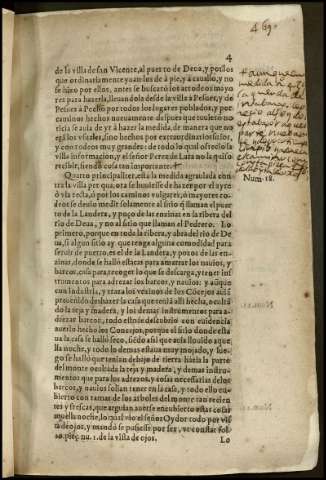 4
de la villa de san Vicente, al puerto de Deua, y por los
que ordinariamente yuan los de à pie, y à cauallo, y no
se hizo por ellos, antes se buscarõ los arrodeos mayo
res para hazerla, lleuandola desde la villa à Pesuer, y de
Pesuer à Pechõ por todos los lugares poblados, y por
caminos hechos nueuamente despues que tuuierõ no
ticia se auia de yr à hazer la medida, de manera que no
erã los vsuales, sino hechos por extraordinarios sitios,
y con rodeos muy grandes: de todo lo qual ofrecio la
villa informacion, y el señor Perez de Lara no la quiso
recibir, siendo cosa tan importante.
Quarto principaliter, està la medida agrauiada contra
la villa por que, ora se huuiesse de hazer por el ayre
ò via recta, ò por los caminos vulgares, ò mayores ro
deos se deuio medir solamente al sitio q̃ llaman el puer
to de la Landera, y poço de las enzinas en la ribera del
rio de Deua, y no al sitio que llaman el Pedrero. Lo
primero, porque en toda la ribera, y abra del rio de De
ua, si algun sitio ay que tenga alguna comodidad para
seruir de puerto, es el de la Landera, y poços de las en
zinas, donde se hallò estacas para amarrar los nauios, y
barcos, casa para recoger lo que se descarga, y tener ins
trumentos para adreçar los barcos, y nauios: y aũque
con industria, y traza los vezinos de los Cõcejos auiã
preuenido deshazer la casa que tenia alli hecha, oculta
do la teja y madera, y los demas instrumentos para a-
dreçar barcos, todo esto se descubrio con euidencia
auerlo hecho los Concejos, porque el sitio donde esta
ua la casa se hallò seco, siẽdo assi que auia llouido aque
lla noche, y todo lo demas estaua muy mojado, y lue-
go se hallò que tenian debajo de tierra hàzia la parte
del monte ocultada la teja, y madera, y demas instru-
mentos que para los adreços, y cosas necessarias de los
barcos, y nauios solian tener en la casa, y todo ello en-
cubierto con ramas de los arboles del monte tan recien
tes y frescas, que arguian auerse encubierto estas cosas
aquella noche, lo qual vio el señor Oydor todo por vis
ta de ojos, y mandò se pusiesse por fee, vt constat fol-
nu. 1. de la vista de ojos.
Lo
Num. 18.